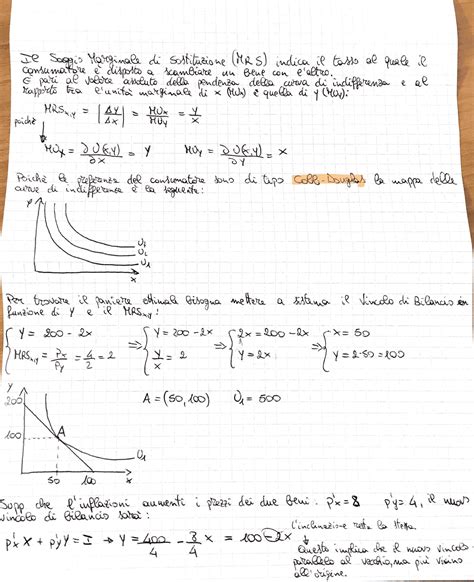 Il Saggio Marginale di Sostituzione (MRS) indica il tasso al quale il
consumatore è disposto a scambiare un bene con l'altro.
È pari al valore assoluto della pendenza della curva di indifferenza e al
rapporto tra l'unità marginale di x (MUx) e quella di y (MUy):
MRSx,y = |ΔY/ΔX| = MUx/MUy = Y/X
poiché
MUx = ∂U(x,y)/∂X = Y MUy = ∂U(x,y)/∂Y = X
Poiché le preferenze del consumatore sono di tipo Cobb-Douglas la mappa delle
curve di indifferenza è la seguente:
Y
U1
X
Per trovare il paniere ottimale bisogna mettere a sistema il vincolo di Bilancio in
funzione di Y e il MRSx,y:
{ Y = 200 - 2x ⇒ { Y = 200 - 2x ⇒ { 2x = 200 - 2x ⇒ { x = 50
{ MRSx,y = Px/Py = 4/2 = 2 { Y/X = 2 { Y = 2x { Y = 2·50 = 100
Y
200
A = (50,100) U1 = 500
100 A
U1
50 100 X
Supp che l'inflazioni aumenti i prezzi dei due beni: p'x = 8 p'y = 4, il nuovo
vincolo di bilancio sarà:
l'inclinazione resta la stessa.
p'x X + p'y Y = I → Y = 400/4 - 8/4 x = 100 - 2x
Questo implica che il nuovo vincolo
parallelo al vecchio, ma più vicino
all'origine.